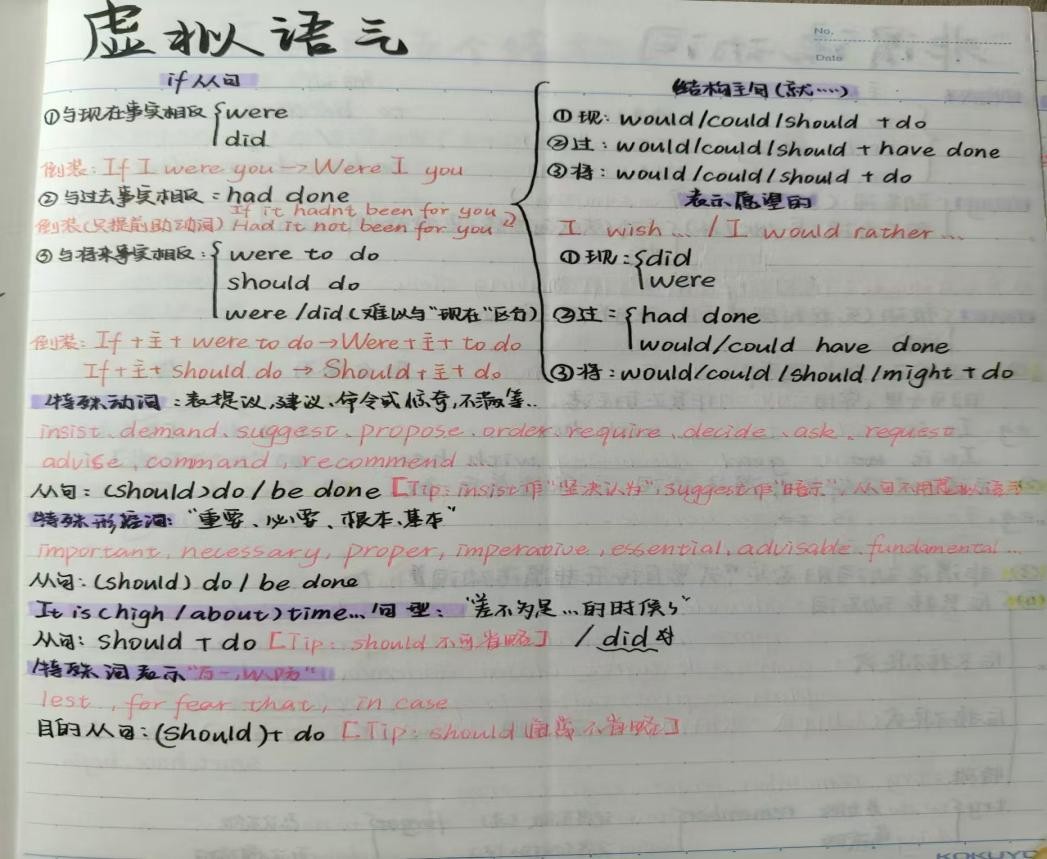 虚拟语气
No.
Date
if 从句
①与现在事实相反{were
did
倒装:If I were you→Were I you
②与过去事实相反:had done
If it hadn't been for you
倒装(只提前助动词)Had it not been for you
③与将来事实相反:{were to do
should do
were/did(难以与"现在"区分)
倒装:If+主+were to do→Were+主+to do
If+主+should do→Should+主+do
结构主句(就……)
①现:would/could/should +do
②过:would/could/should + have done
③将:would/could/should + do
表示愿望的
I wish… / I would rather…
①现:{did
were
②过:{had done
would/could have done
③将:would/could/should/might + do
特殊动词:表提议、建议、命令或惊奇,不满等..
insist、demand、suggest、propose、order、require、decide、ask、request
advise、command、recommend…
从句:(should)do/be done [Tip:insist作"坚决认为",suggest作"暗示",从句不用虚拟语气
特殊形容词:"重要、必要、根本、基本"
important, necessary, proper, imperative, essential, advisable, fundamental…
从句:(should) do/be done
It is(high/about)time…句型:"差不多是…的时候了"
从句:should + do [Tip:should不可省略] / did
特殊词表示"万一,以防"
lest, for fear that, in case
目的从句:(should)+ do [Tip:should通常不省略]
KOKUYO